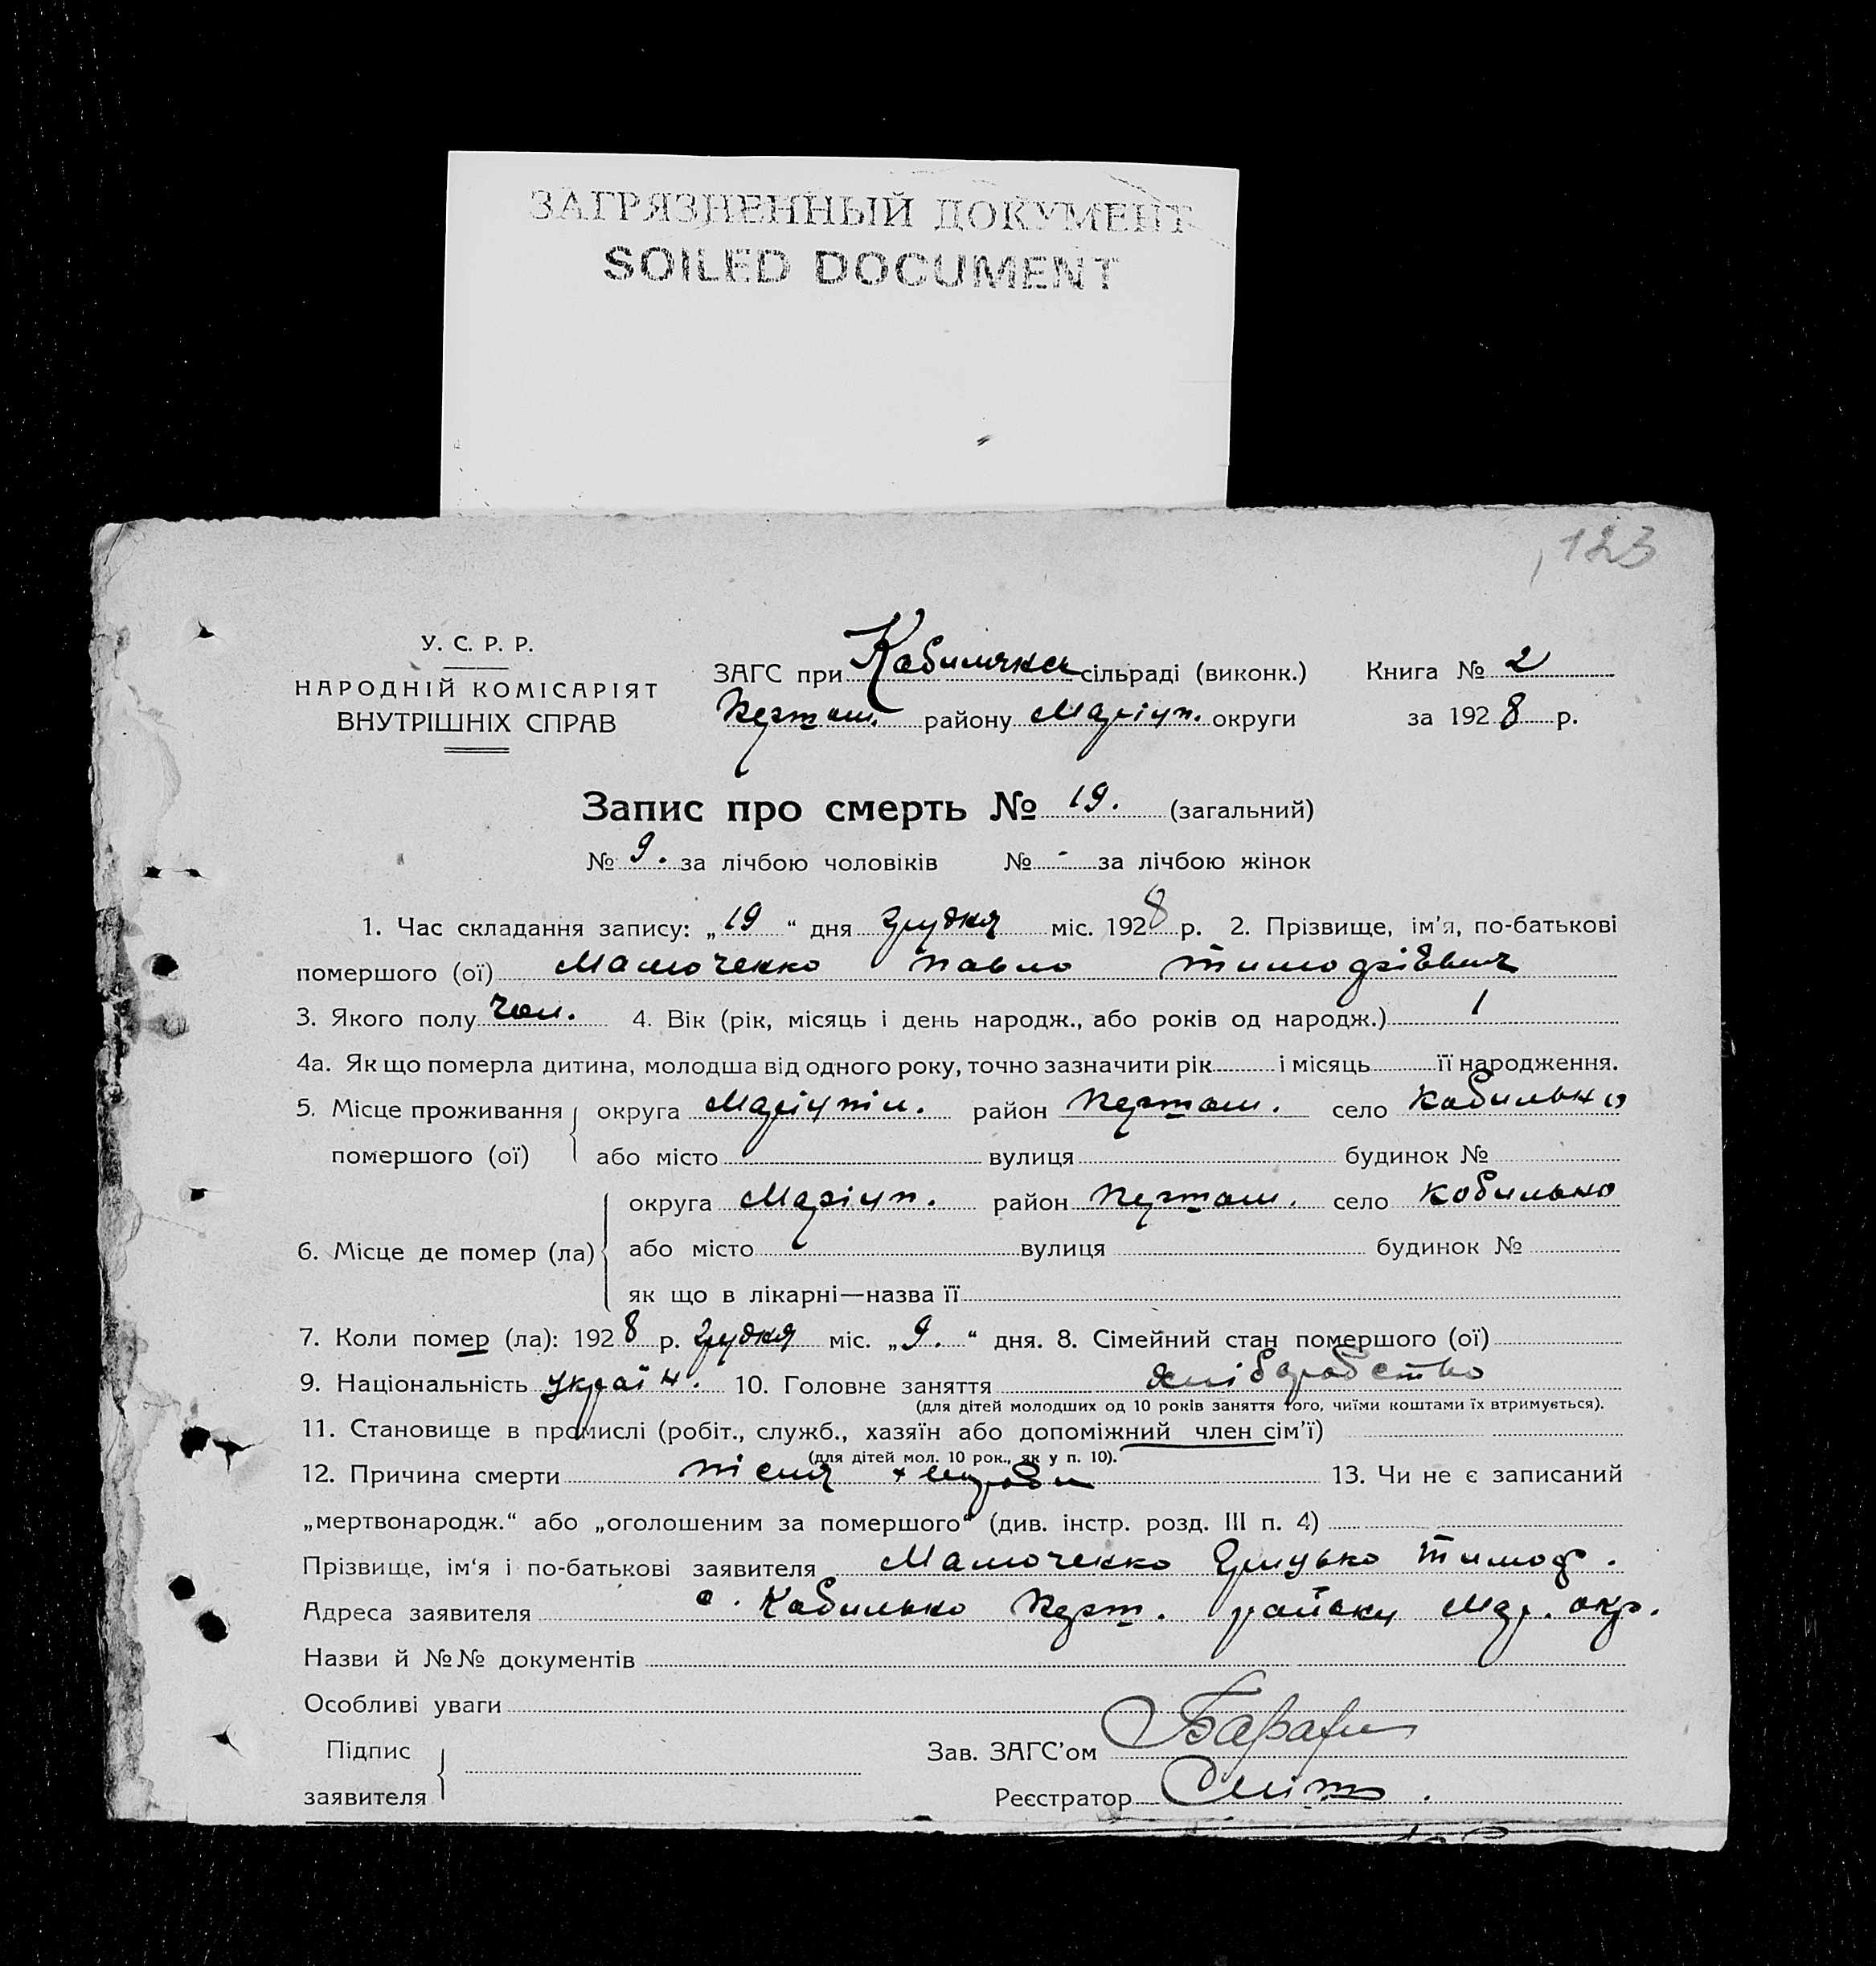 ЗАГРЯЗНЕННЫЙ ДОКУМЕНТ
SOILED DOCUMENT
123
У. С. Р. Р.
НАРОДНІЙ КОМІСАРІЯТ
ВНУТРІШНІХ СПРАВ
ЗАГС при сільраді (виконк.) Книга № 2
району Маріуп. округи за 1928 р.
Запис про смерть № 19. (загальний)
№ 9. за лічбою чоловіків № - за лічбою жінок
1. Час складання запису: „19“ дня грудня міс. 1928 р. 2. Прізвище, ім'я, по-батькові
помершого (ої) Мамоченко Павло Тимофіївич
3. Якого полу чол. 4. Вік (рік, місяць і день народж., або років од народж.) 1
4а. Як що померла дитина, молодша від одного року, точно зазначити рік і місяць її народження.
5. Місце проживання округа Маріупіл. район село Кобильно
помершого (ої) або місто вулиця будинок №
округа Маріуп. район село Кобильно
6. Місце де помер (ла) або місто вулиця будинок №
як що в лікарні—назва її
7. Коли помер (ла): 1928 р. грудня міс. „9.“ дня. 8. Сімейний стан помершого (ої)
9. Національність україн. 10. Головне заняття хліборобство
(для дітей молодших од 10 років заняття того, чиїми коштами їх втримується).
11. Становище в промислі (робіт., служб., хазяїн або допоміжний член сім'ї)
(для дітей мол. 10 рок., як у п. 10).
12. Причина смерти після хвороби 13. Чи не є записаний
„мертвонародж.“ або „оголошеним за помершого“ (див. інстр. розд. III п. 4)
Прізвище, ім'я і по-батькові заявителя Мамоченко Грицько Тимоф.
Адреса заявителя с. Кобильно району Мар. окр.
Назви й №№ документів
Особливі уваги
Підпис Зав. ЗАГС'ом
заявителя Реєстратор